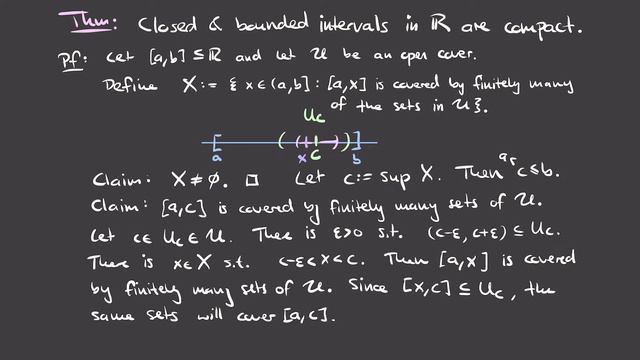 Thm: Closed & bounded intervals in ℝ are compact.
Pf: Let [a,b] ⊆ ℝ and let 𝒰 be an open cover.
Define X := { x ∈ (a,b] : [a,x] is covered by finitely many
of the sets in 𝒰 }.
Uc
[ ( ( + + ) ) ]
a x c b
Claim: X ≠ ∅. □ Let c := sup X. Then a ≤ c ≤ b.
Claim: [a,c] is covered by finitely many sets of 𝒰.
Let c ∈ Uc ∈ 𝒰. There is ε > 0 s.t. (c-ε, c+ε) ⊆ Uc.
There is x ∈ X s.t. c-ε < x < c. Then [a,x] is covered
by finitely many sets of 𝒰. Since [x,c] ⊆ Uc, the
same sets will cover [a,c].